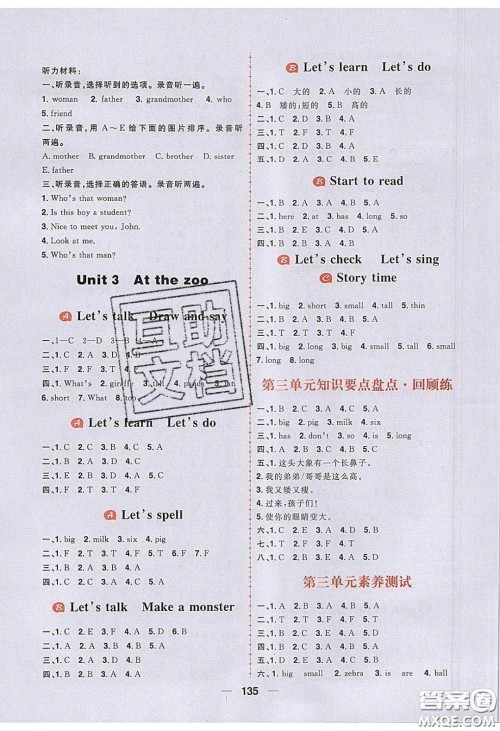 听力材料:
一、听录音,选择听到的选项。录音听一遍。
1. woman 2. father 3. grandmother 4. who
5. friend
二、听录音,用 A～E 给下面的图片排序。录音听
两遍。
A. mother B. grandmother C. brother D. sister
E. father
三、听录音,选择正确的答语。录音听两遍。
1. Who's that woman?
2. Is this boy a student?
3. Nice to meet you, John.
4. Look at me.
5. Who's that man?
Unit 3 At the zoo
A Let's talk Draw and say
一、1—C 2—D 3—B 4—A
二、1. C 2. A 3. A 4. B 5. A
三、1. F 2. T 3. T 4. F
四、1. What's 2. giraffe 3. tall 4. panda 5. fat
6. short 7. What's 8. small
A Let's learn Let's do
一、1. C 2. D 3. B 4. A
二、1. B 2. C 3. A 4. A 5. B
三、1. B 2. D 3. A 4. C
四、1. F 2. T 3. T 4. F 5. T
A Let's spell
一、1. B 2. milk 3. six 4. pig
二、1. F 2. F 3. T 4. T 5. F
三、1. C 2. B 3. A 4. B 5. A
四、1. F 2. T 3. T 4. F
B Let's talk Make a monster
一、1. C 2. E 3. F 4. D 5. B 6. A
二、1. B 2. A 3. B 4. C 5. A
三、1. C 2. D 3. B 4. E 5. A
四、1. F 2. T 3. F 4. F 5. T
B Let's learn Let's do
一、1. C 大的 2. A 小的 3. A 长的
4. B 矮的;短的 5. B 高的
二、1. C 2. A 3. B 4. B 5. A
三、1. T 2. F 3. T 4. F 5. T
四、1. C 2. D 3. A 4. B
五、1. D 2. C 3. B 4. E 5. A
B Start to read
一、1. C 2. A 3. A 4. B 5. A
二、1. here 2. at 3. has 4. long 5. so
三、1. T 2. T 3. F 4. F 5. T
B Let's check Let's sing
C Story time
一、1. big 2. short 3. small 4. tall 5. long
二、1. T 2. F 3. F 4. T 5. T
三、1. C 2. B 3. A 4. D 5. E
四、1. F 2. T 3. T 4. F
五、1. big 2. small 3. long 4. short
第三单元知识要点盘点·回顾练
一、1. C 2. B 3. A 4. B 5. A
二、1. B 2. A 3. B 4. A 5. B
三、1. has 2. don't 3. so 4. is 5. long
四、1. B 2. C 3. A 4. C 5. A
五、1. 这头大象有一个长鼻子。
2. 我的弟弟/哥哥是这么高。
3. 我又矮又瘦。
4. 过来,孩子们!
5. 使你的眼睛变大。
六、1. C 2. D 3. B 4. E 5. A
七、1. B 2. D 3. A 4. C
八、1. C 2. A 3. B 4. A 5. A
第三单元素养测试
一、1. B 2. C 3. A 4. A 5. A
二、1. T 2. T 3. F 4. T 5. F
三、1. C 2. B 3. A 4. B 5. A
四、1. C 2. D 3. E 4. B 5. A
五、1. big 2. is 3. zebra 4. is 5. are 6. ball
135
互助
文档
答案圈
MXQE.COM